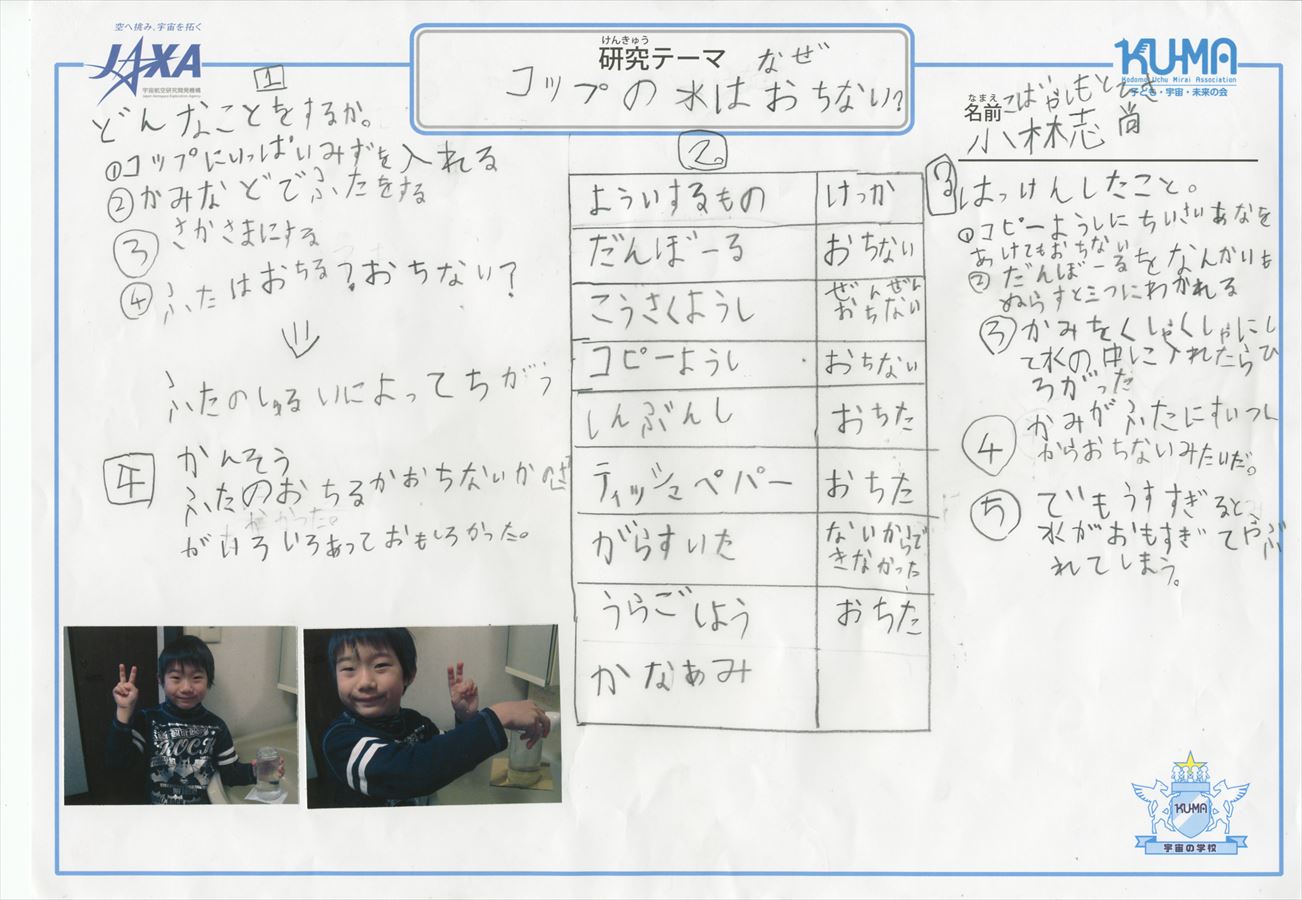 空へ挑み、宇宙を拓く
JAXA
宇宙航空研究開発機構
Japan Aerospace Exploration Agency
けんきゅう
研究テーマ
なぜ
コップの水はおちない?
KU-MA
Kodomo Uchu Mirai Association
子ども・宇宙・未来の会
なまえ
名前
こばやしもとなお
小林志尚
1
どんなことをするか。
①コップにいっぱいみずを入れる
②かみなどでふたをする
③さかさまにする
④ふたはおちる?おちない?
⇓
ふたのしゅるいによってちがう
2
よういするもの けっか
だんぼーる おちない
こうさくようし ぜんぜんおちない
コピーようし おちない
しんぶんし おちた
ティッシュペパー おちた
がらすいた ないからできなかった
うらごしよう おちた
かなあみ
3
はっけんしたこと。
①コピーようしにちいさいあなを
あけてもおちない
②だんぼーるをなんかいも
ぬらすと三つにわかれる
③かみをくしゃくしゃにし
て水の中に入れたらひ
ろがった
④かみがふたにすいつ
からおちないみたいだ。
⑤でもうすすぎると、
水がおもすぎてやぶ
れてしまう。
4
かんそう
ふたのおちるかおちないかのぜ
がいろいろあっておもしろかった。
ROCK
KU-MA
宇宙の学校